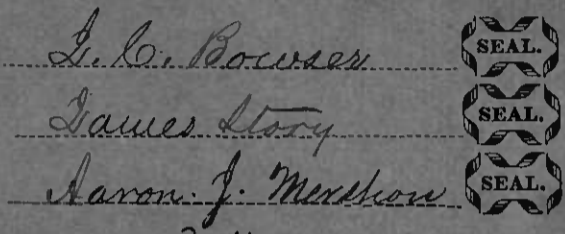 G. C. Bowser SEAL.
James Story SEAL.
Aaron. J. Mershon SEAL.